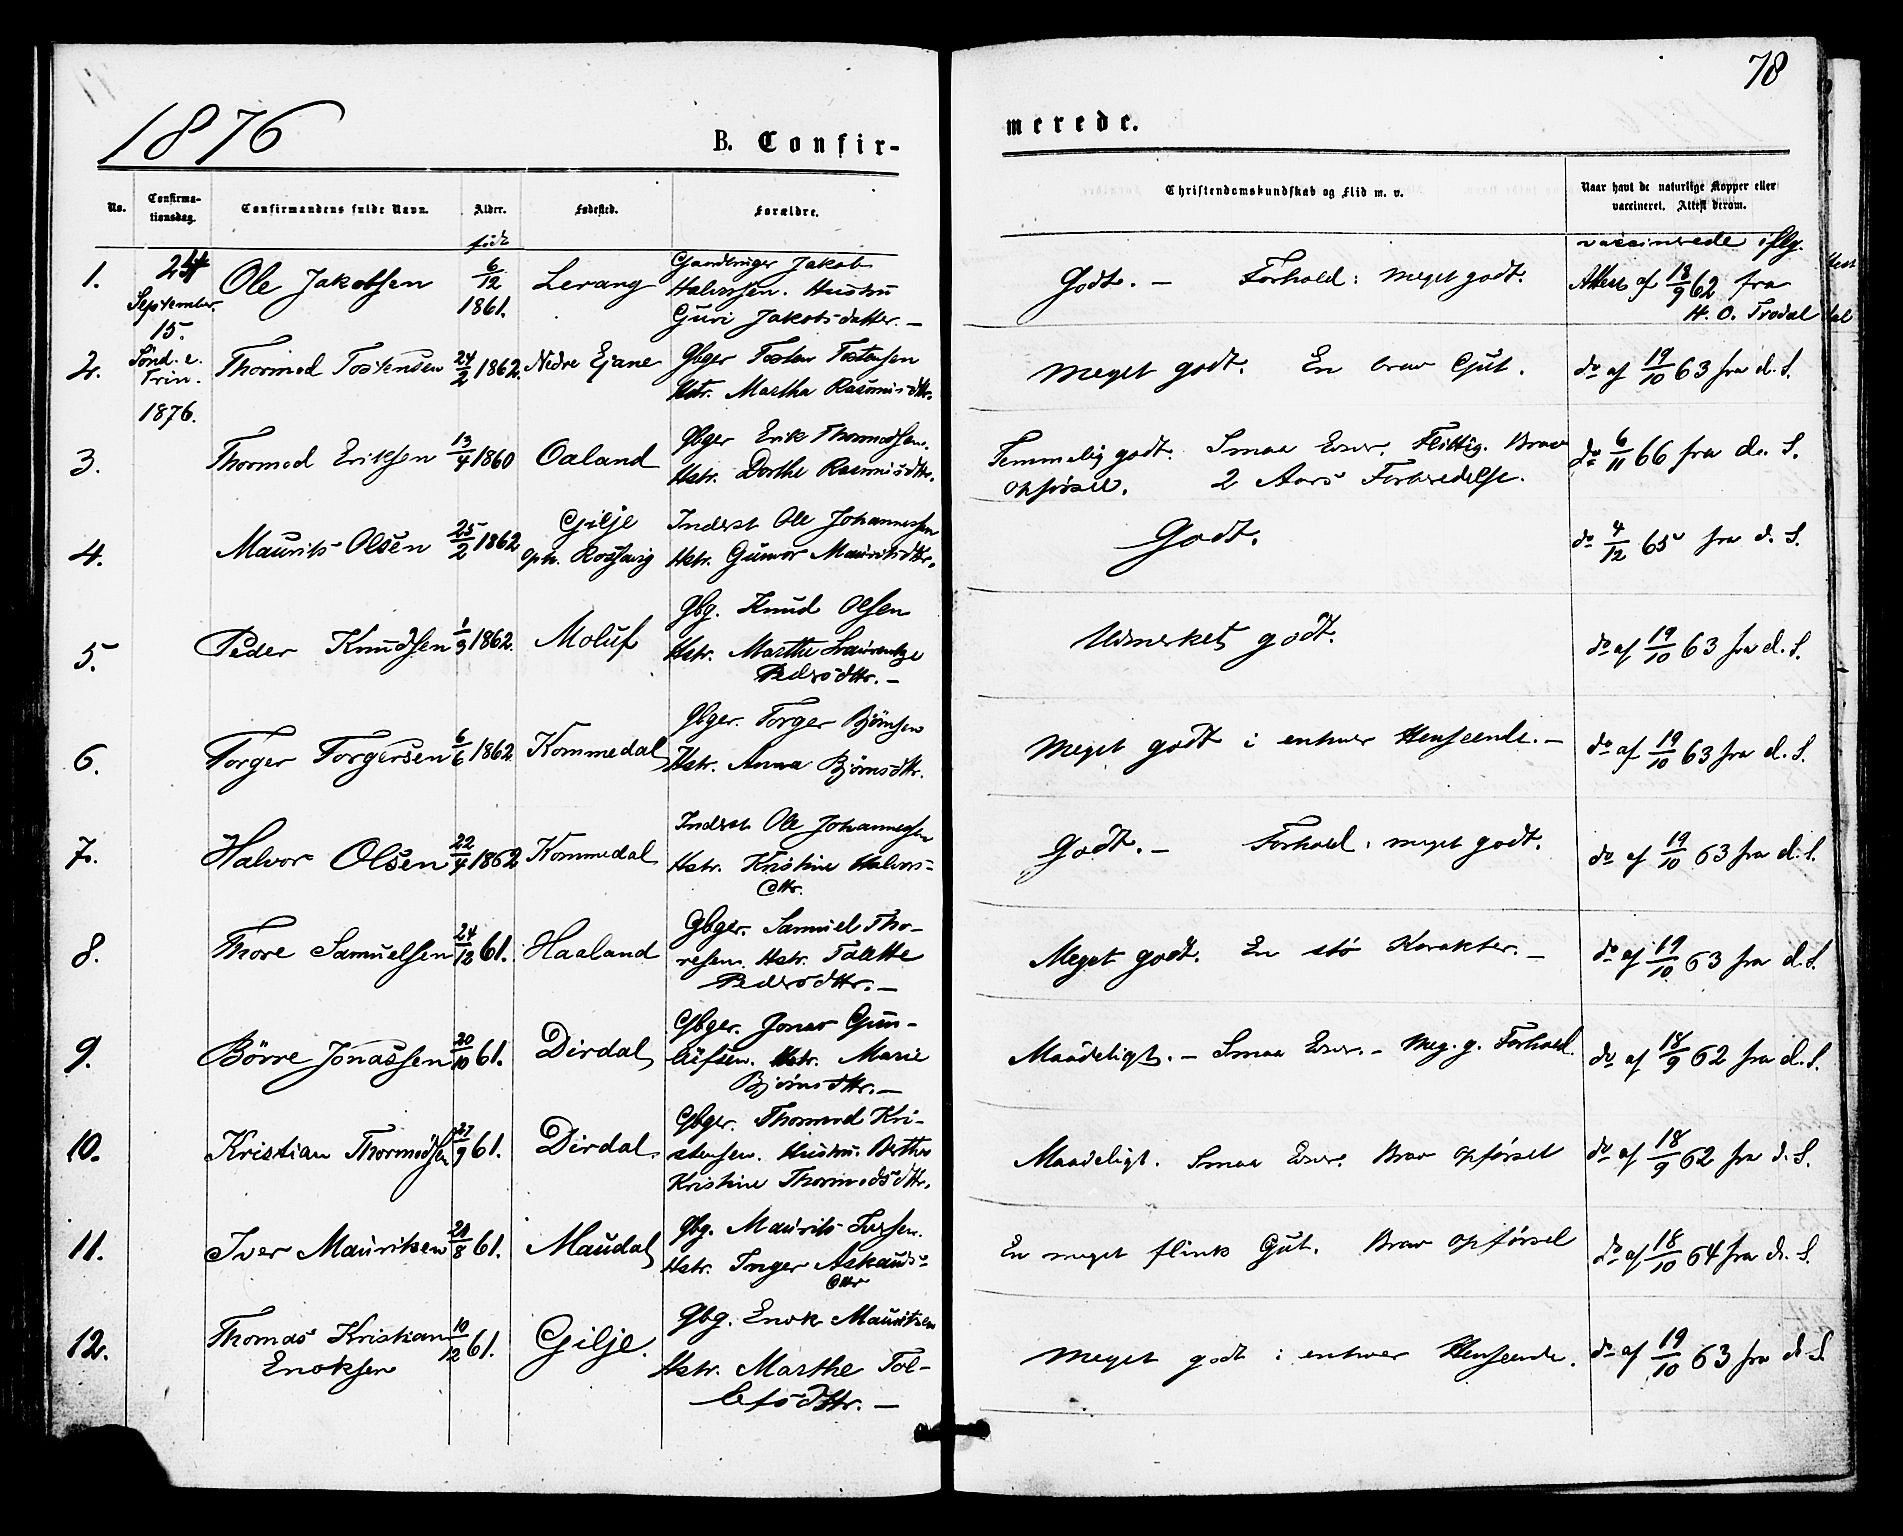 78
1876
B. Confir-
merede.
No.
Confirma-
tionsdag.
Confirmandens fulde Navn.
Alder.
Fødested.
Forældre.
Christendomskundskab og Flid m. v.
Naar havt de naturlige Kopper eller
vaccineret. Attest derom.
født
1. 24 September 15. Sönd. e. Trin. 1876.
Ole Jakobsen 6/12 1861. Lerang
Gaardbruger Jakob
Halvorsen. Hustru
Guri Jakobsdatter. –
Godt. – Forhold: meget godt.
vaccinerede iflg.
Attest af 18/9 62 fra
H. O. Trodal
2. Thormod Tostensen 24/2 1862. Nedre Ejane
Gbger Tosten Tostensen
Hstr. Martha Rasmusdttr.
Meget godt. En brav Gut.
do af 19/10 63 fra d. S.
3. Thormod Eriksen 13/4 1860 Oaland
Gbger Erik Thormodsen.
Hstr. Dorthe Rasmusdttr.
Temmelig godt. Smaa Evner. Flittig. Brav
Opførsel. 2 Aars Forberedelse.
do 6/11 66 fra d. S.
4. Maurits Olsen 25/2 1862 Gilje
oph. Rossavig
Inderst Ole Johannessen
Hstr. Gunvor Mauritsdttr.
Godt.
do 4/12 65 fra d. S.
5. Peder Knudsen 1/3 1862. Moluf
Gbg. Knud Olsen
Hstr. Marthe Laurentze
Pedersdttr. –
Udmerket godt.
do af 19/10 63 fra d. S.
6. Torger Torgersen 6/6 1862 Kommedal
Gbger. Torger Björnsen
Hstr. Anna Bjørnsdttr.
Meget godt i enhver Henseende. –
do af 19/10 63 fra d. S.
7. Halvor Olsen 22/4 1862 Kommedal
Inderst Ole Johannessen
Hstr. Kristine Halvors-
dttr.
Godt. – Forhold: meget godt.
do af 19/10 63 fra d. S.
8. Thore Samuelsen 24/12 61. Haaland
Gbger. Samuel Tho-
resen. Hstr. Talette
Pedersdttr. –
Meget godt. En stø Karakter. –
do af 19/10 63 fra d. S.
9. Börre Jonassen 20/10 61. Dirdal
Gbger. Jonas Gun-
Hstr. Marie
Bjørnsdttr. –
Maadeligt. – Smaa Evner. – Meg. g. Forhold.
do af 18/9 62 fra d. S.
10. Kristian Thormodsen 27/9 61. Dirdal.
Gbger. Thormod Kri-
stensen. Hustru. Berthe
Kristine Thormodsdttr.
Maadeligt. Smaa Evner. Brav Opførsel
do af 18/9 62 fra d. S.
11. Iver Mauritsen 8 61. Maudal
Gbg. Maurits Iversen.
Hstr. Inger Askauds-
dttr
En meget flink Gut. Brav Opførsel
do af 18/10 64 fra d. S.
12. Thomas Kristian
Enoksen 10/12 61. Gilje.
Gbg. Enok Mauritsen
Hstr. Marthe Tol-
lefsdttr. –
Meget godt i enhver Henseende.
do af 19/10 63 fra d. S.